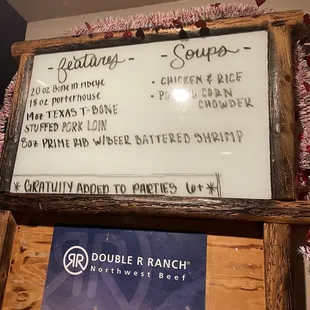 - features -
- Soups -
20 oz Bone in ribeye
18 oz porterhouse
14 oz TEXAS T-BONE
STUFFED PORK LOIN
8oz PRIME RIB W/BEER BATTERED SHRIMP
• CHICKEN & RICE
• CORN
CHOWDER
* GRATUITY ADDED TO PARTIES 6+ *
RR DOUBLE R RANCH®
Northwest Beef